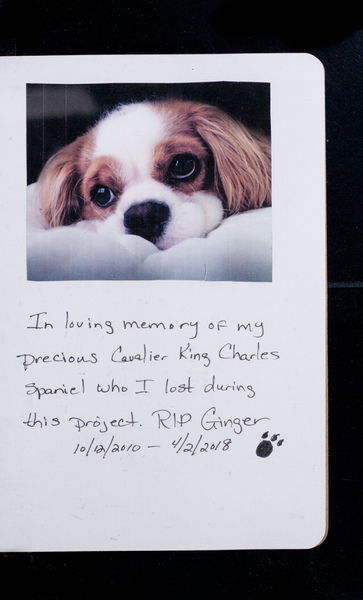 In loving memory of my
precious Cavalier King Charles
Spaniel who I lost during
this project. RIP Ginger
10/12/2010 - 4/2/2018